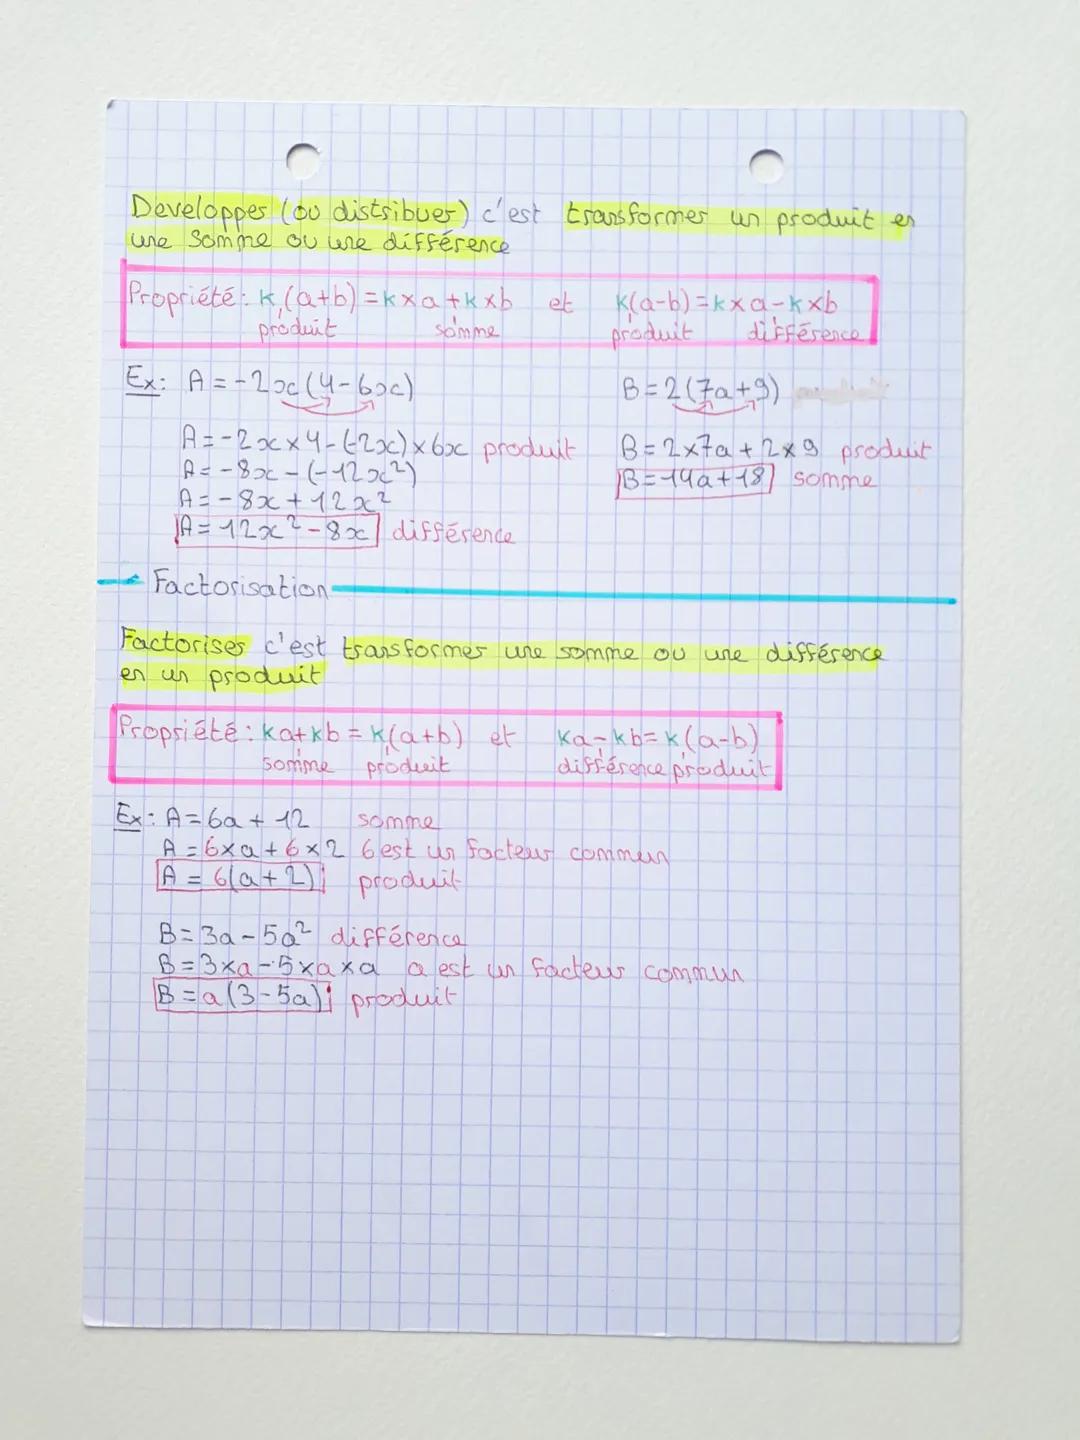 Developper (ou distribuer) c'est transformer un produit en
une somme ou une différence
Propriété: k(a+b)=k×a+k×b et k(a-b)=k×a-k×b
produit somme produit différence
Ex: A=-2x(4-6x) B=2(7a+9)
A=-2x×4-(-2x)×6x produit B=2×7a+2×9 produit
A=-8x-(-12x²) B=14a+18 somme
A=-8x+12x²
A=12x²-8x différence
Factorisation
Factoriser c'est transformer une somme ou une différence
en un produit
Propriété: ka+kb=k(a+b) et ka-kb=k(a-b)
somme produit différence produit
Ex: A=6a+12 somme
A=6×a+6×2 6 est un facteur commun
A=6(a+2) produit
B=3a-5a² différence
B=3×a-5×a×a a est un facteur commun
B=a(3-5a) produit